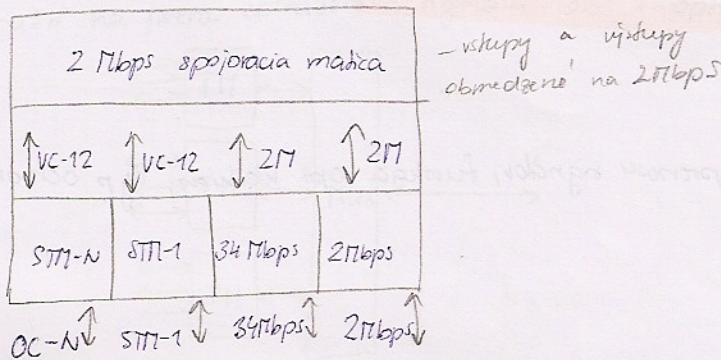 2 Mbps spojovacia matica
– vstupy a výstupy
obmedzené na 2Mbps
VC-12 VC-12 2M 2M
STM-N STM-1 34 Mbps 2Mbps
OC-N STM-1 34Mbps 2Mbps